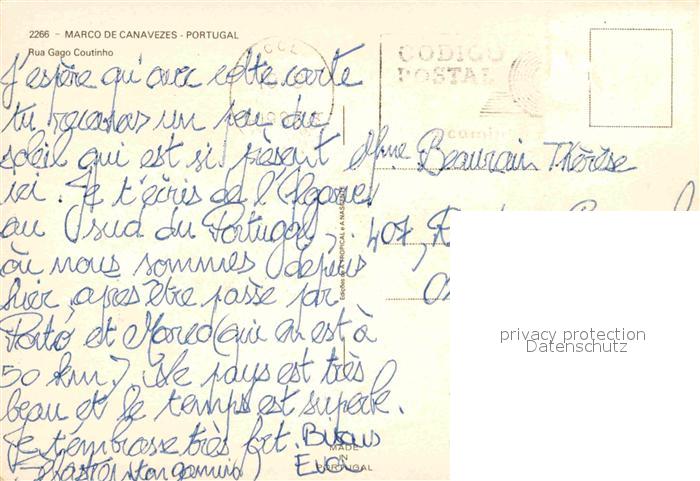 2266 - MARCO DE CANAVEZES - PORTUGAL
Rua Gago Coutinho
CODIGO
POSTAL
J'espère qu'avec cette carte
tu recevras un peu du
soleil qui est si présent
ici. Je t'écris de l'Algarve
au sud du Portugal,
où nous sommes depuis
hier, après être passé par
Porto et Marco (qui en est à
50 km). Le pays est très
beau et le temps est superbe.
Je t'embrasse très fort. Bisous
Mme Beaurain Thérèse
407, R
Edições de A TROPICAL e A NASCENTE
MADE
IN
PORTUGAL
privacy protection
Datenschutz